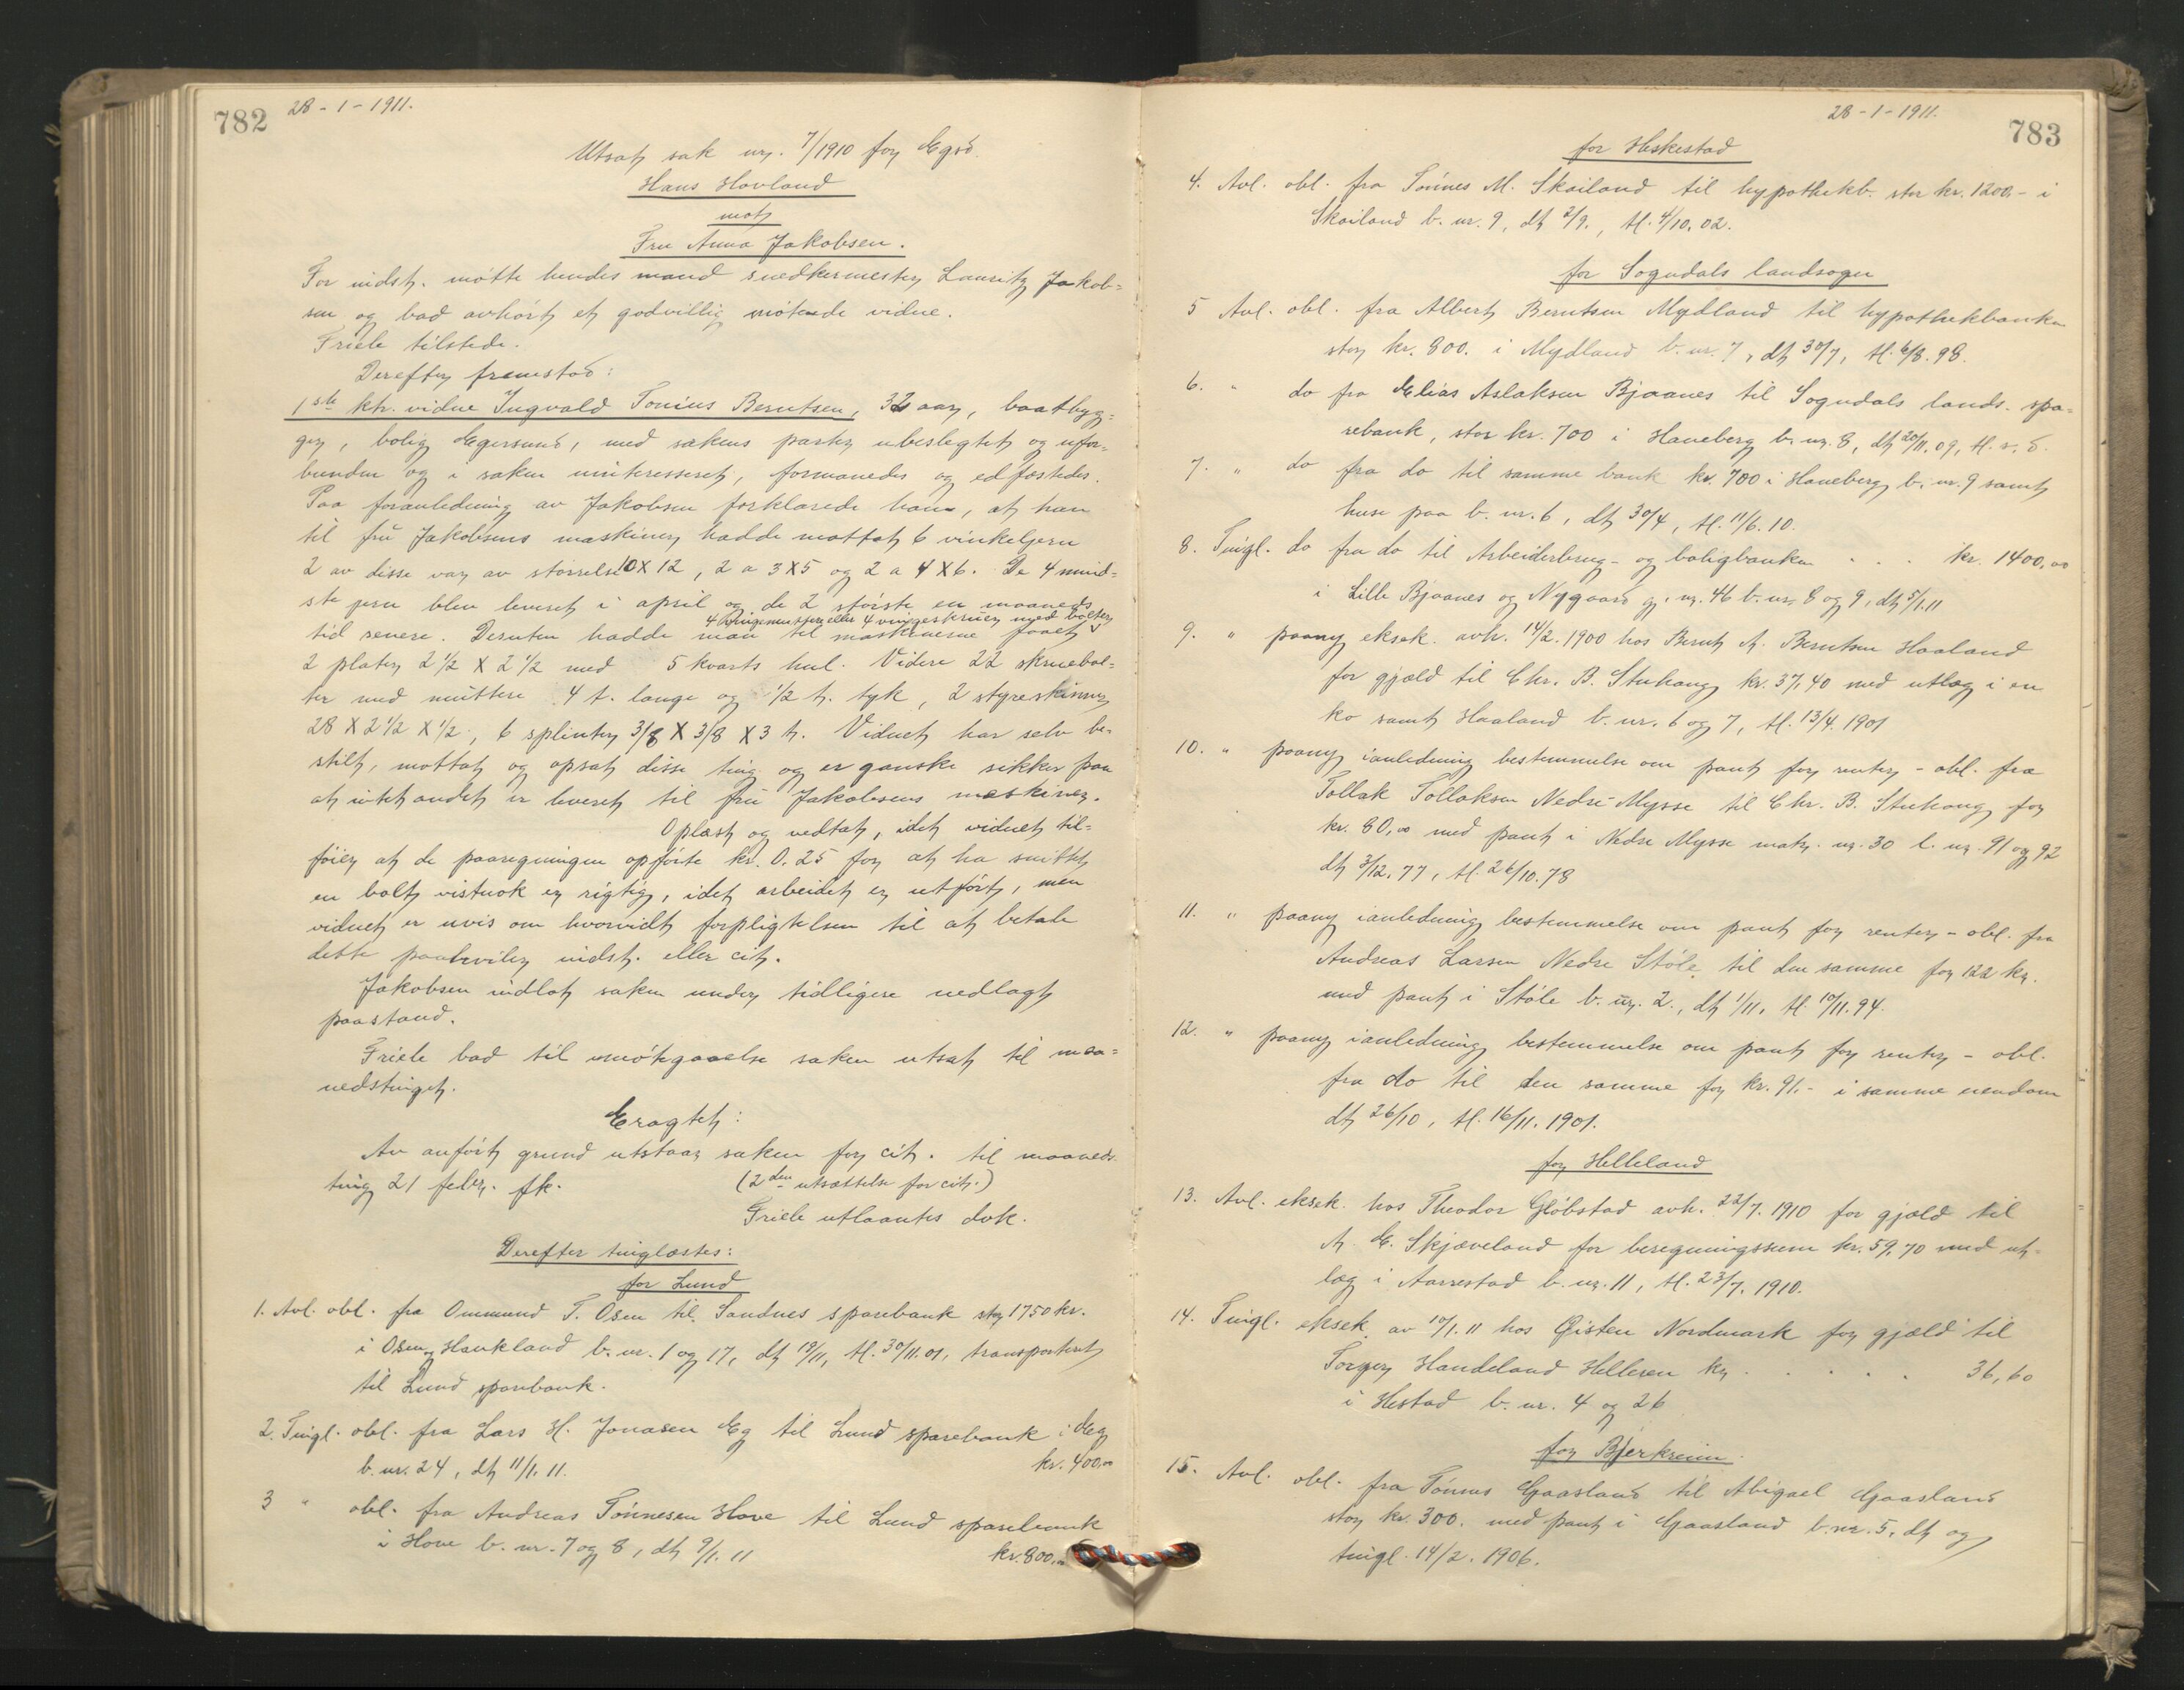 782
28-1-1911.
Utsat sak nr. 7/1910 for Egsd.
Hans Hovland
mot
Fru Anna Jakobsen.
For indst. møtte hendes mand snedkermester Lauritz Jakob=
sen og bad avhørt et godvillig møtende vidne.
Friele tilstede.
Derefter fremstod:
1ste ktr. vidne Ingvald Tonius Berntsen, 32 aar, baatbyg=
ger, bolig Egersund, med sakens parter ubeslegtet og ufor=
bunden og i saken uinteresseret, formanedes og edfæstedes.
Paa foranledning av Jakobsen forklarede han, at han
til fru Jakobsens maskiner hadde mottat 6 vinkeljern
2 av disse var av størrelse 10 X 12, 2 a 3 X 5 og 2 a 4 X 6. De 4 mind=
ste jern blev leveret i april og de 2 største en maaneds
4 vingemuttere eller 4 vingeskruer med bolter
tid senere. Desuten hadde man til maskinerne faaet
2 plater 2 1/2 X 2 1/2 med 5 kvarts hul. Videre 22 skruebol=
ter med muttere 4 t. lange og 1/2 t. tyk, 2 styreskinner
28 X 2 1/2 X 1/2, 6 splinter 3/8 X 3/8 X 3 t. Vidnet har selv be=
stilt, mottat og opsat disse ting og er ganske sikker paa
at intet andet er leveret til fru Jakobsens maskiner.
Oplæst og vedtat, idet vidnet til=
føier at de paaregningen opførte kr. 0.25 for at ha snittet
en bolt vistnok er rigtig, idet arbeidet er utført, men
vidnet er uvis om hvorvidt forpligtelsen til at betale
dette paahviler indst. eller cit.
Jakobsen indlot saken under tidligere nedlagt
paastand.
Friele bad til imøtegaaelse saken utsat til maa=
nedstinget.
Eragtet:
Av anført grund utstaar saken for cit. til maaneds
ting 21 febr. fk. (2den utsættelse for cit.)
Friele utlaantes dok.
Derefter tinglæstes:
for Lund
1. Avl. obl. fra Ommund T. Osen til Sandnes sparebank stor 1750 kr.
i Osen, Haukland b. nr. 1 og 17, dt 18/11, tl. 30/11.01, transporteret
til Lund sparebank.
2. Tingl. obl. fra Lars H. Jonasen Eg til Lund sparebank i Eg
b. nr. 24, dt 11/1.11. kr. 400,00
3 " obl. fra Andreas Tønnesen Hove til Lund sparebank
i Hove b. nr. 7 og 8, dt 9/1.11 kr. 800,00
28-1-1911.
783
for Heskestad
4. Avl. obl. fra Tønnes M. Skailand til hypothekb. stor kr. 1200,- i
Skailand b. nr. 9, dt 2/9., tl. 4/10.02.
for Sogndals landsogn
5 Avl. obl. fra Albert Berntsen Mydland til hypothekbanken
stor kr. 800. i Mydland b. nr. 7, dt 30/7, tl. 6/8.98.
6. " do fra Elias Aslaksen Bjaanes til Sogndals lands. spa=
rebank, stor kr. 700 i Haneberg b. nr. 8, dt 20/11.09, tl. s. d.
7. " do fra do til samme bank kr. 700 i Haneberg b. nr. 9 samt
huse paa b. nr. 6, dt 30/4, tl. 11/6.10.
8. Tingl. do fra do til Arbeiderbrug- og boligbanken . . . kr. 1400,00
i Lille Bjaanes og Nygaard gr. nr. 46 b. nr. 8 og 9, dt 5/1.11
9. " paany eksek. avh. 14/2.1900 hos Bernt A. Berntsen Haaland
for gjæld til Chr. B. Stuhaug kr. 37,40 med utlæg i en
ko samt Haaland b. nr. 6 og 7, tl. 13/4.1901
10. " paany ianledning bestemmelse om pant for renter - obl. fra
Tollak Tollaksen Nedre-Mysse til Chr. B. Stuhaug for
kr. 80,00 med pant i Nedre Mysse matr. nr. 30 l. nr. 91 og 92
dt 3/12.77, tl. 26/10.78
11. " paany ianledning bestemmelse om pant for renter - obl. fra
Andreas Larsen Nedre Støle til den samme for 122 kr.
med pant i Støle b. nr. 2., dt 1/11, tl. 10/11.94.
12. " paany ianledning bestemmelse om pant for renter - obl.
fra do til den samme for kr. 91.- i samme eiendom
dt 26/10, tl. 16/11.1901.
for Helleland
13. Avl. eksek. hos Theodor Gløbstad avh. 22/7.1910 for gjæld til
A. E. Skjæveland for beregningssum kr. 59,70 med ut=
læg i Aarrestad b. nr. 11, tl. 23/7.1910.
14. Tingl. eksek. av 10/1.11 hos Øisten Nordmark for gjæld til
Torger Handeland Helleren kr . . . . . 36,60
i Hestad b. nr. 4 og 26
for Bjerkreim.
15. Avl. obl. fra Tønnes Gaasland til Abigael Gaasland
stor kr. 300. med pant i Gaasland b. nr. 5, dt og
tingl. 14/2.1906.